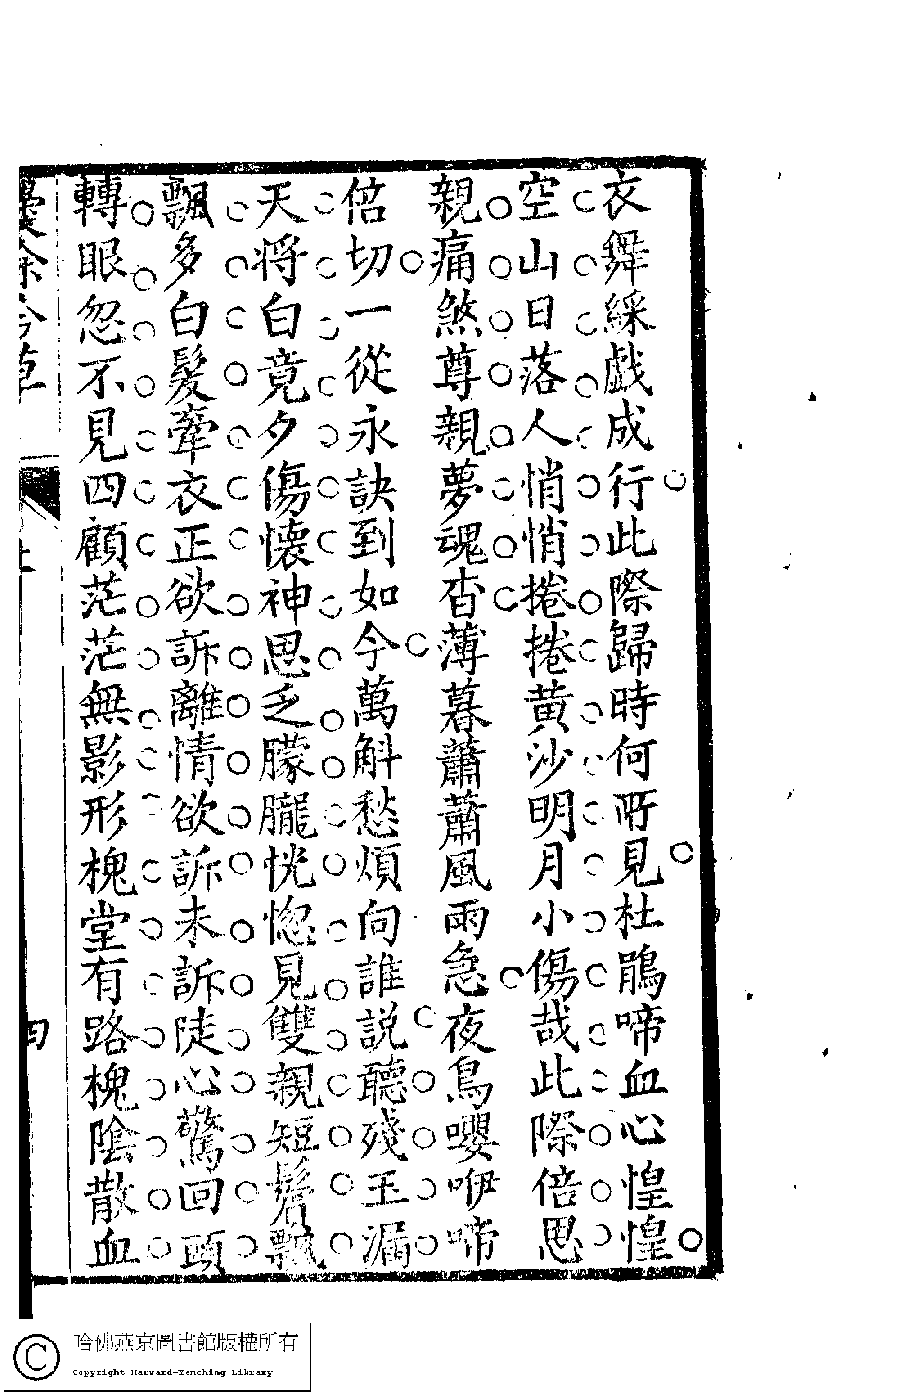 衣舞綵戯成行此際歸時何所見杜鵑啼血心惶惶
空山日落人悄悄捲捲黄沙明月小傷哉此際倍思
親痛煞尊親夢魂杳薄暮蕭蕭風雨急夜鳥嚶咿啼
倍切一從永訣到如今萬斛愁煩向誰説聽殘玉漏
天將白竟夕傷懷神思乏朦朧恍惚見雙親短鬢飄
飄多白髮牽衣正欲訴離情欲訴未訴陡心驚回頭
轉眼忽不見四顧茫茫無影形槐堂有路槐陰散血
餘吟草
四
哈佛燕京圖書館版權所有
Copyright Harvard-Yenching Library